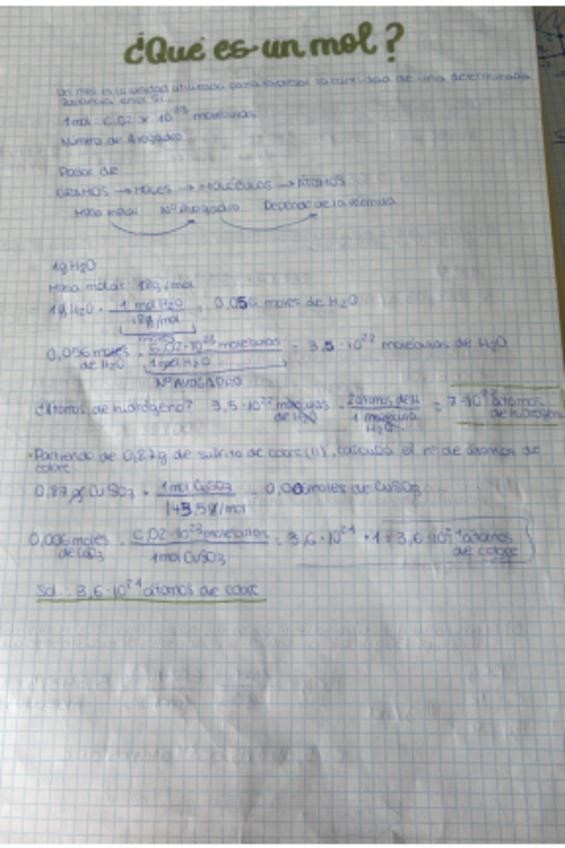 ¿Qué es un mol?
Un mol es la unidad utilizada para expresar la cantidad de una determinada
sustancia en el SI
1 mol = 6,02 x 10²³ moléculas
Número de Avogadro
Pasar de
GRAMOS → MOLES → MOLÉCULAS → ÁTOMOS
Masa molar Nº Avogadro Depende de la fórmula
1g H₂O
Masa molar: 18g/mol
1g H₂O · 1 mol H₂O / 18g/mol = 0,056 moles de H₂O
0,056 moles de H₂O · 6,02·10²³ moléculas / 1 mol H₂O = 3,5 · 10²² moléculas de H₂O
Nº AVOGADRO
¿Átomos de hidrógeno? 3,5·10²² moléculas de H₂O · 2 átomos de H / 1 molécula H₂O = 7·10²² átomos de hidrógeno
· Partiendo de 0,87g de sulfito de cobre (II), calcula el nº de átomos de
cobre
0,87 g CuSO₃ · 1 mol CuSO₃ / 143,5g/mol = 0,006 moles de CuSO₃
0,006 moles · 6,02·10²³ moléculas / 1 mol CuSO₃ = 3,6·10²¹ · 1 = 3,6·10²¹ átomos de cobre
Sol: 3,6·10²¹ átomos de cobre